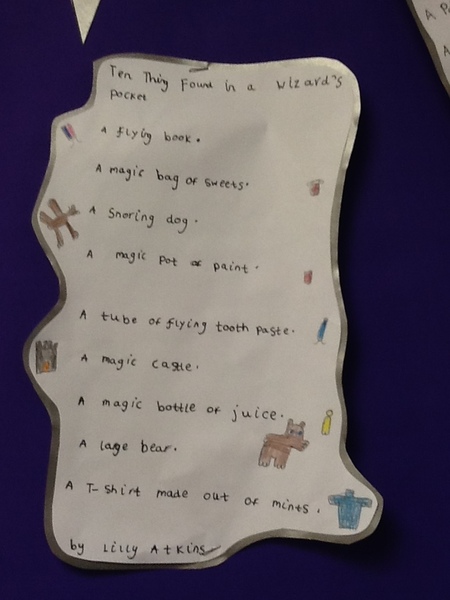 Ten Thing Found in a Wizard's
Pocket
A flying book.
A magic bag of sweets.
A Snoring dog.
A magic pot of paint.
A tube of flying tooth paste.
A magic castle.
A magic bottle of juice.
A lage bear.
A T-shirt made out of mints.
by Lilly Atkins
A
A